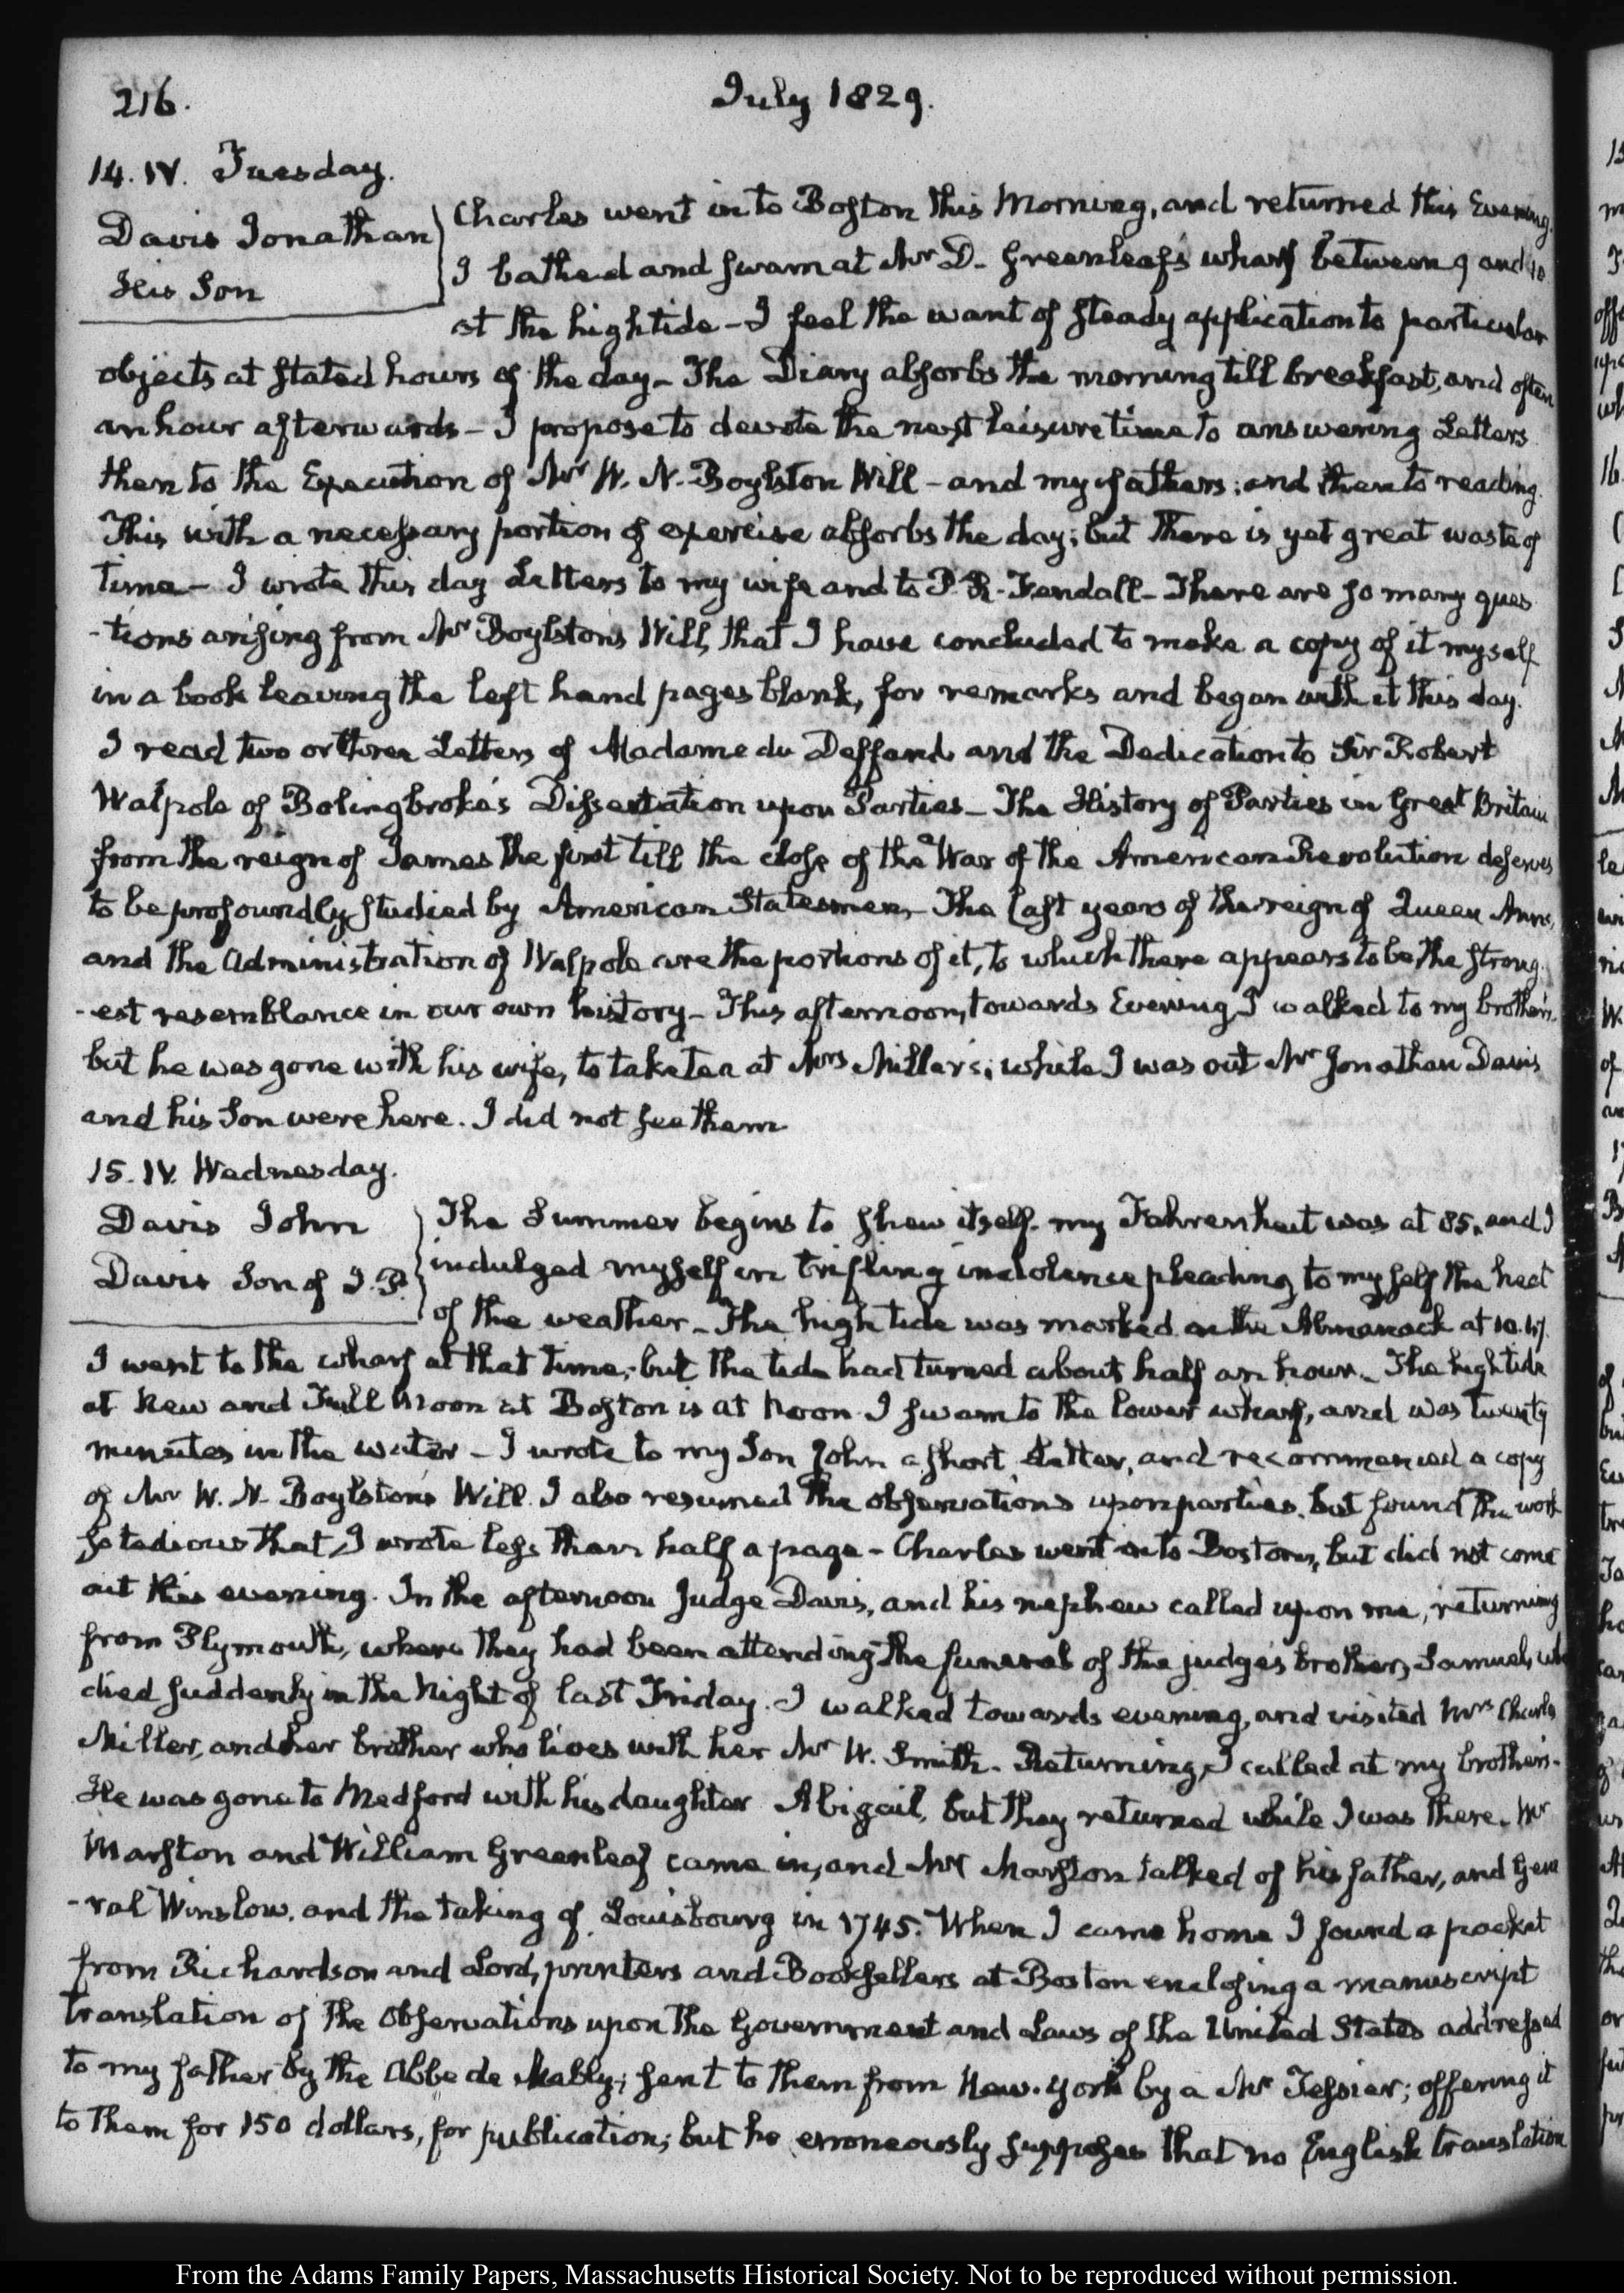 216.
July 1829.
14. IV. Tuesday.
Davis Jonathan
His Son
Charles went in to Boston this Morning, and returned this Evening.
I bathed and swam at Mr. D. Greenleaf's wharf between 9 and 10
at the high tide – I feel the want of steady application to particular
objects at stated hours of the day – The Diary absorbs the morning till breakfast, and often
an hour afterwards – I propose to devote the next leisure time to answering Letters
then to the Execution of Mr W. N. Boylston Will – and my father's; and then to reading.
This with a necessary portion of exercise absorbs the day; but there is yet great waste of
time – I wrote this day Letters to my wife and to P. R. Fendall – There are so many ques
-tions arising from Mr Boylston's Will, that I have concluded to make a copy of it myself
in a book leaving the left hand pages blank, for remarks and began with it this day.
I read two or three Letters of Madame du Deffand and the Dedication to Sir Robert
Walpole of Bolingbroke's Dissertation upon Parties – The History of Parties in Great Britain
from the reign of James the first till the close of the War of the American Revolution deserves
to be profoundly studied by American Statesmen – The last years of the reign of Queen Anne,
and the Administration of Walpole are the portions of it, to which there appears to be the strong.
-est resemblance in our own history – This afternoon, towards Evening I walked to my brother's.
but he was gone with his wife, to take tea at Mrs Miller's; while I was out Mr Jonathan Davis
and his Son were here. I did not see them
15. IV. Wednesday.
Davis John
Davis Son of I. P.
The Summer begins to shew itself. my Fahrenheit was at 85. and I
indulged myself in trifling indolence pleading to myself the heat
of the weather – The high tide was marked in the Almanack at 10.47.
I went to the wharf at that time; but the tide had turned about half an hour. – The high tide
at New and Full Moon at Boston is at Noon. I swam to the lower wharf, and was twenty
minutes in the water – I wrote to my Son John a short Letter, and recommenced a copy
of Mr W. N. Boylston's Will. I also resumed the observations upon parties. but found the work
so tedious that I wrote less than half a page – Charles went into Boston, but did not come
out this evening. In the afternoon Judge Davis, and his nephew called upon me, returning
from Plymouth, where they had been attending the funeral of the judge's brother, Samuel, who
died suddenly in the Night of last Friday. I walked towards evening, and visited Mrs Charles
Miller, and her brother who lives with her Mr W. Smith. Returning, I called at my brother's.
He was gone to Medford with his daughter Abigail, but they returned while I was there. Mr
Marston and William Greenleaf came in, and Mr Marston talked of his father, and Gene
-ral Winslow, and the taking of Louisbourg in 1745. When I came home I found a packet
from Richardson and Lord, printers and Booksellers at Boston enclosing a manuscript
translation of the Observations upon the Government and Laws of the United States addressed
to my father by the Abbe de Mably; sent to them from New-York by a Mr Tessier; offering it
to them for 150 dollars, for publication; but he erroneously supposes that no English translation
From the Adams Family Papers, Massachusetts Historical Society. Not to be reproduced without permission.